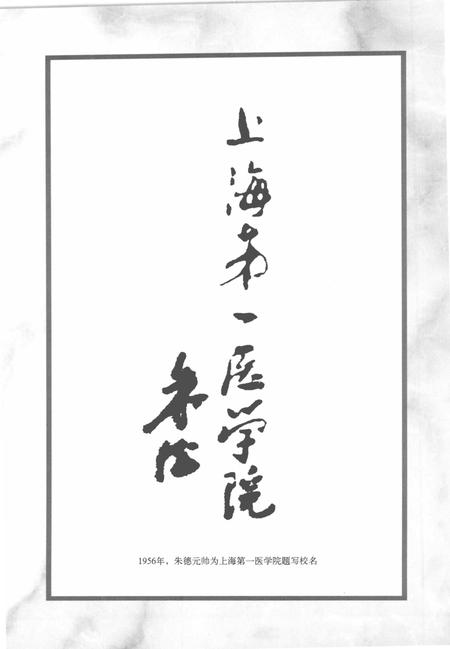 上海第一医学院
朱德
1956年，朱德元帅为上海第一医学院题写校名